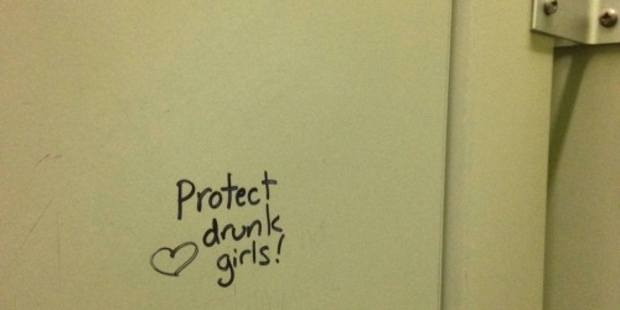 Protect
drunk
girls!